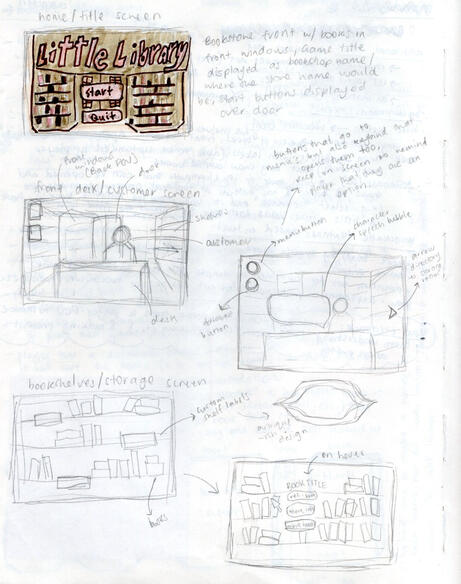 home/title screen
Little Library
Start
Quit
Bookstore front w/ books in
front windows, Game title
displayed as bookshop name/
where the store name would
be, start buttons displayed
over door
buttons that go to
menus but also
on screen to remind
player that they are an
option.
front
windows
(Back POV)
door
front desk/customer screen
shelves
customer
desk
menu button
character
speech bubble
arrow
directory
to storage
room
button
bookshelves/storage screen
custom
shelf labels
antique
-ish
design
books
on hover
BOOK TITLE